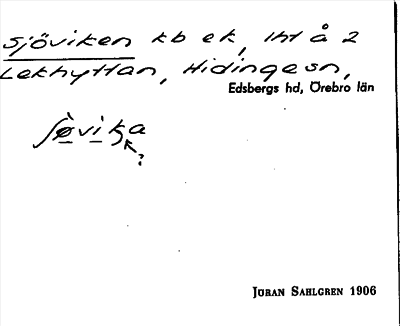 Sjöviken kb ek, Iht å 2
Lekhyttan, Hidinge sn,
Edsbergs hd, Örebro län
?
JÖRAN SAHLGREN 1906